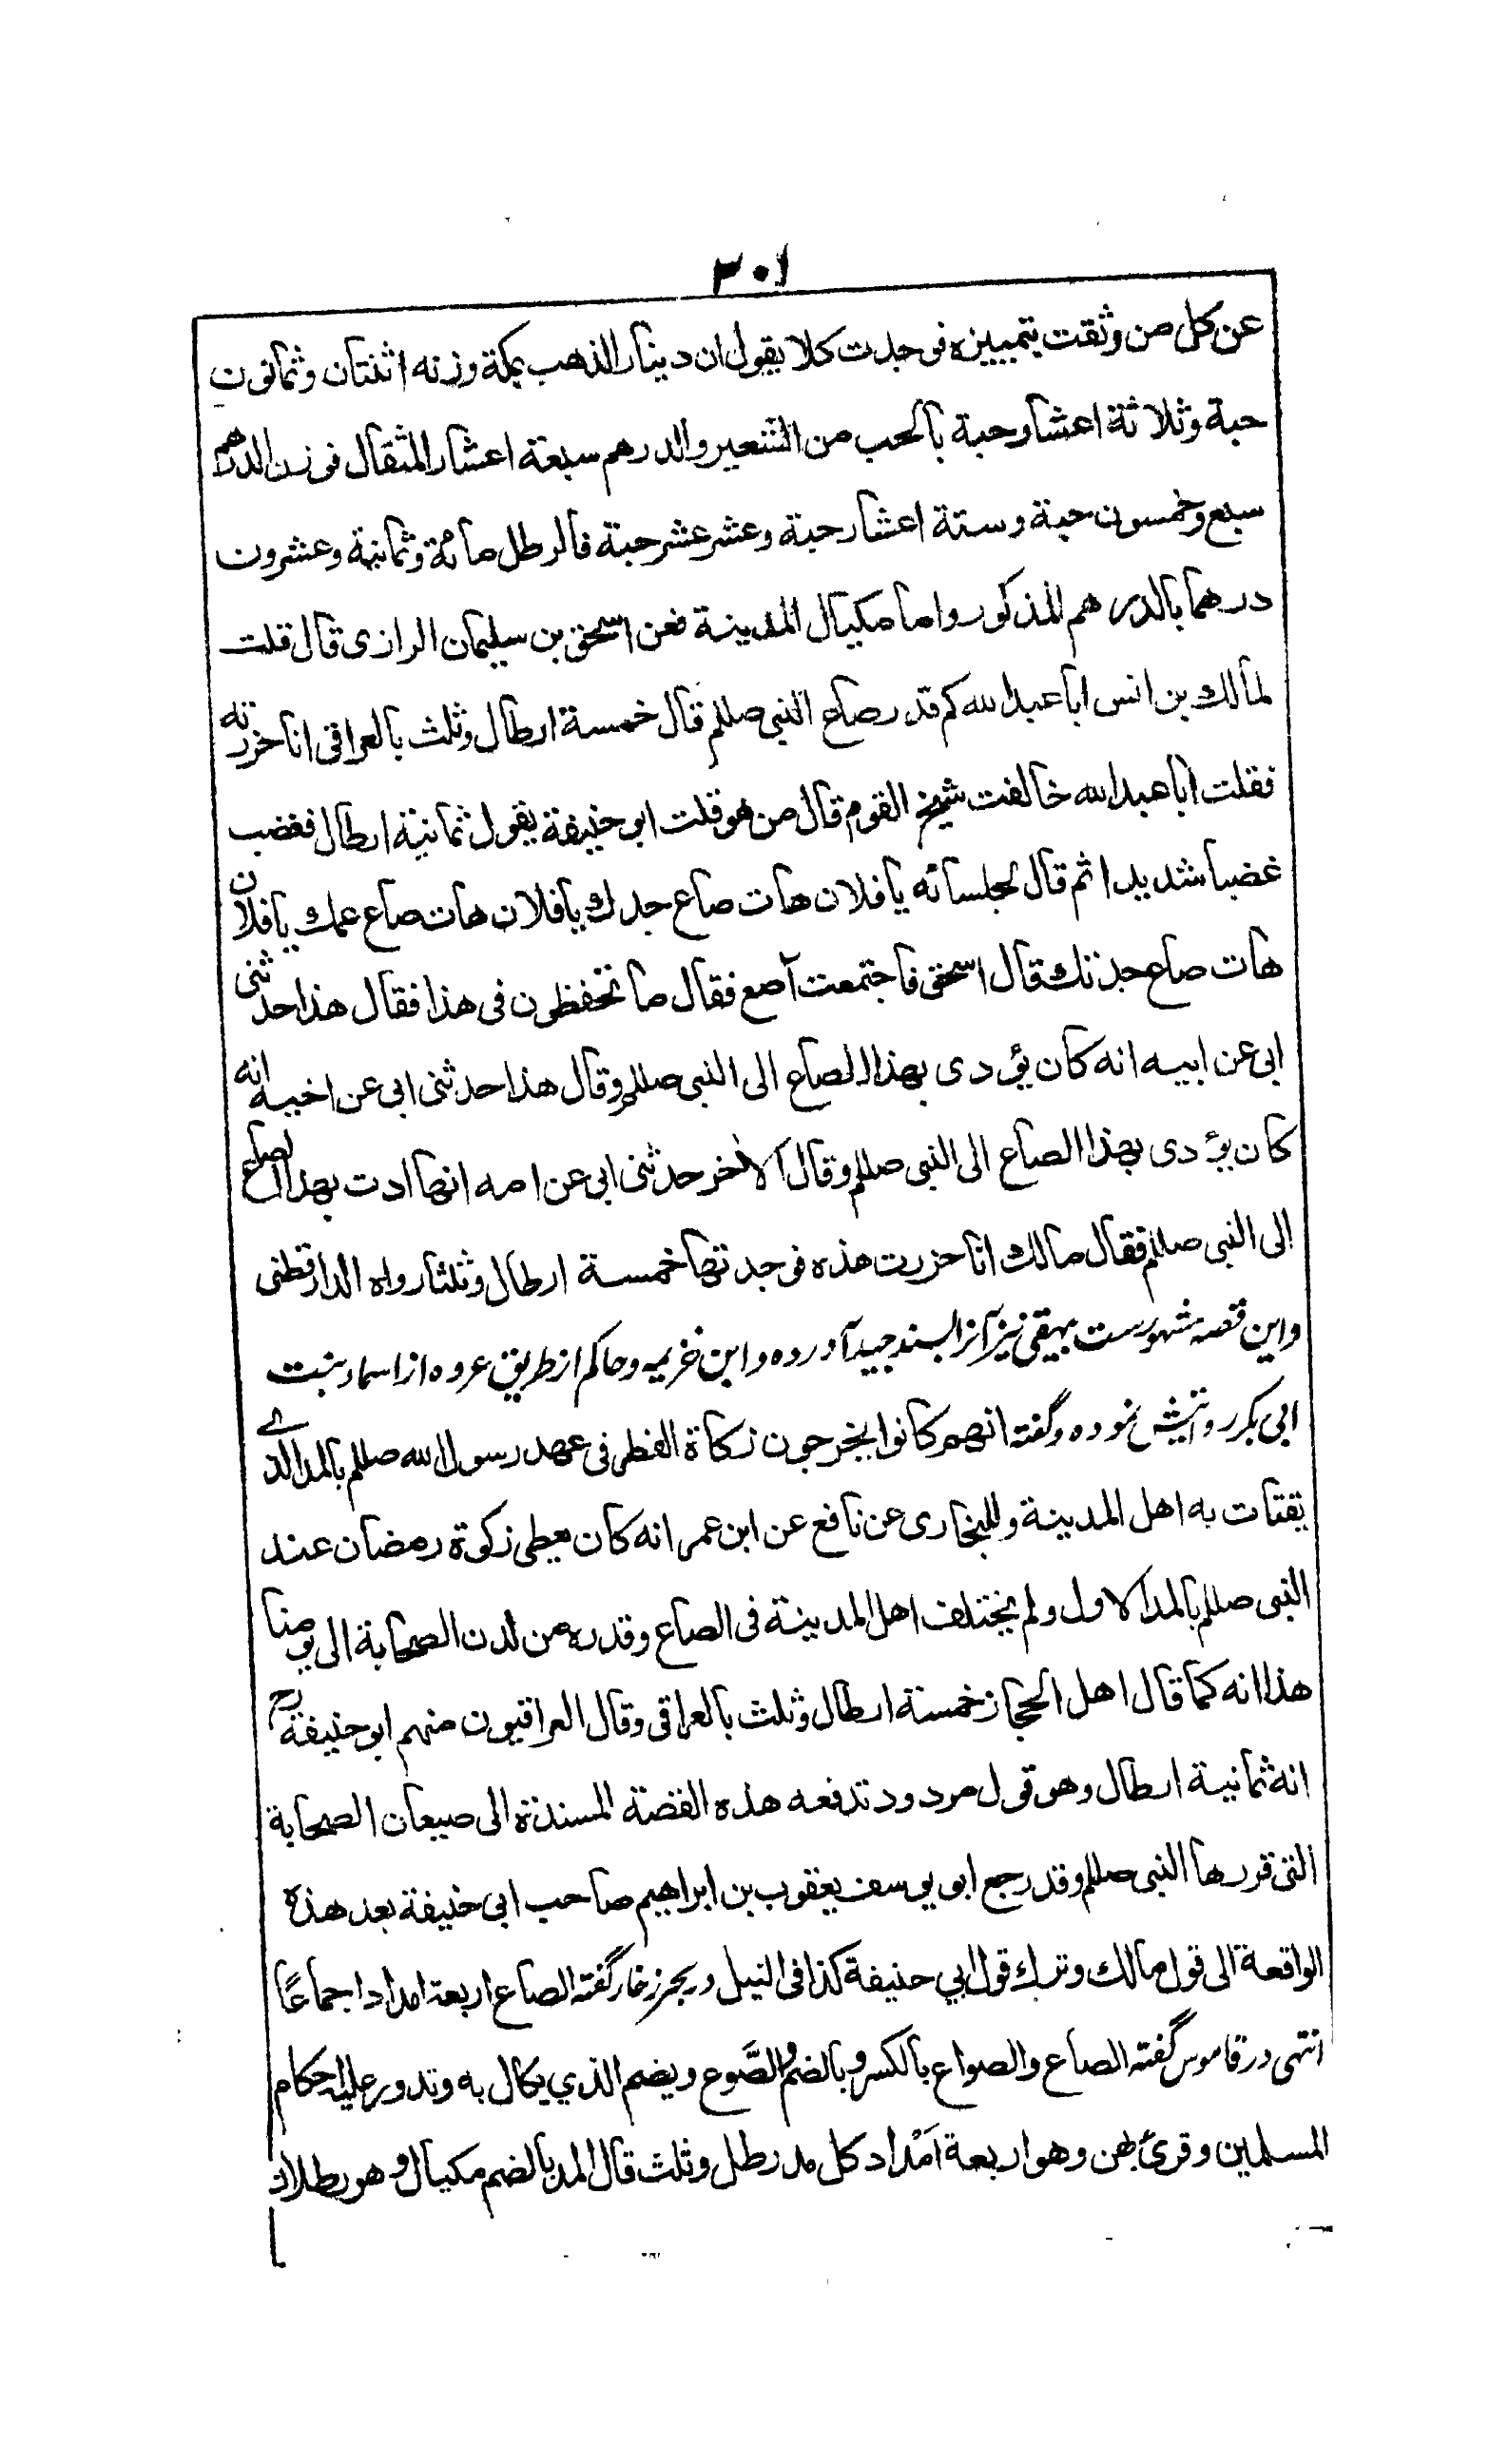 ٣٠١
عن كل من وثقت بتمييزه فوجدت كلا يقول ان دينار الذهب بمكة وزنه اثنتان وثمانون
حبة وثلاثة اعشار حبة بالحب من الشعير والدرهم سبعة اعشار المثقال فوزن الدرهم
سبع وخمسون حبة وستة اعشار حبة وعشر عشر حبة فالرطل مائة وثمانية وعشرون
درهما بالدرهم المذكور واما مكيال المدينة فعن اسحق بن سليمان الرازى قال قلت
لمالك بن انس ابا عبد الله كم قدر صاع النبى صللم قال خمسة ارطال وثلث بالعراقى انا حزرته
فقلت ابا عبد الله خالفت شيخ القوم قال من هو قلت ابو حنيفة يقول ثمانية ارطال فغضب
غضبا شديدا ثم قال لجلسائه يا فلان هات صاع جدك يا فلان هات صاع عمك يا فلان
هات صاع جدتك قال اسحق فاجتمعت آصع فقال ما تحفظون فى هذا فقال هذا حدثنى
ابى عن ابيه انه كان يؤدى بهذا الصاع الى النبى صللم وقال هذا حدثنى ابى عن اخيه انه
كان يؤدى بهذا الصاع الى النبى صللم وقال الآخر حدثنى ابى عن امه انها ادت بهذا الصاع
الى النبى صللم فقال مالك انا حزرت هذه فوجدتها خمسة ارطال وثلثا رواه الدارقطنى
واين قصه مشهورست بيهقى نيز آنرا بسند جيد آورده وابن خزيمه وحاكم از طريق عروه از اسماء بنت
ابى بكر روايتش نموده وگفته انهم كانوا يخرجون زكاة الفطر فى عهد رسول الله صللم بالمد الذے
يقتات به اهل المدينة وللبخارى عن نافع عن ابن عمر انه كان يعطى زكوة رمضان عند
النبى صللم بالمد الاول ولم يختلف اهل المدينة فى الصاع وقدره من لدن الصحابة الى يومنا
هذا انه كما قال اهل الحجاز خمسة ارطال وثلث بالعراقى وقال العراقيون منهم ابو حنيفة رح
انه ثمانية ارطال وهو قول مردود تدفعه هذه القصة المسندة الى صيعان الصحابة
التى قررها النبى صللم وقد رجع ابو يوسف يعقوب بن ابراهيم صاحب ابى حنيفة بعد هذه
الواقعة الى قول مالك وترك قول ابي حنيفة كذا فى النيل ودر بحر زخار گفته الصاع اربعة امداد اجماعًا
انتهى در قاموس گفته الصاع والصواع بالكسر وبالضم والصَّوع ويضم الذي يكال به وتدور عليه احكام
المسلمين وقرئ بهن وهو اربعة اَمْداد كل مد رطل وثلث قال المد بالضم مكيال وهو رطلان